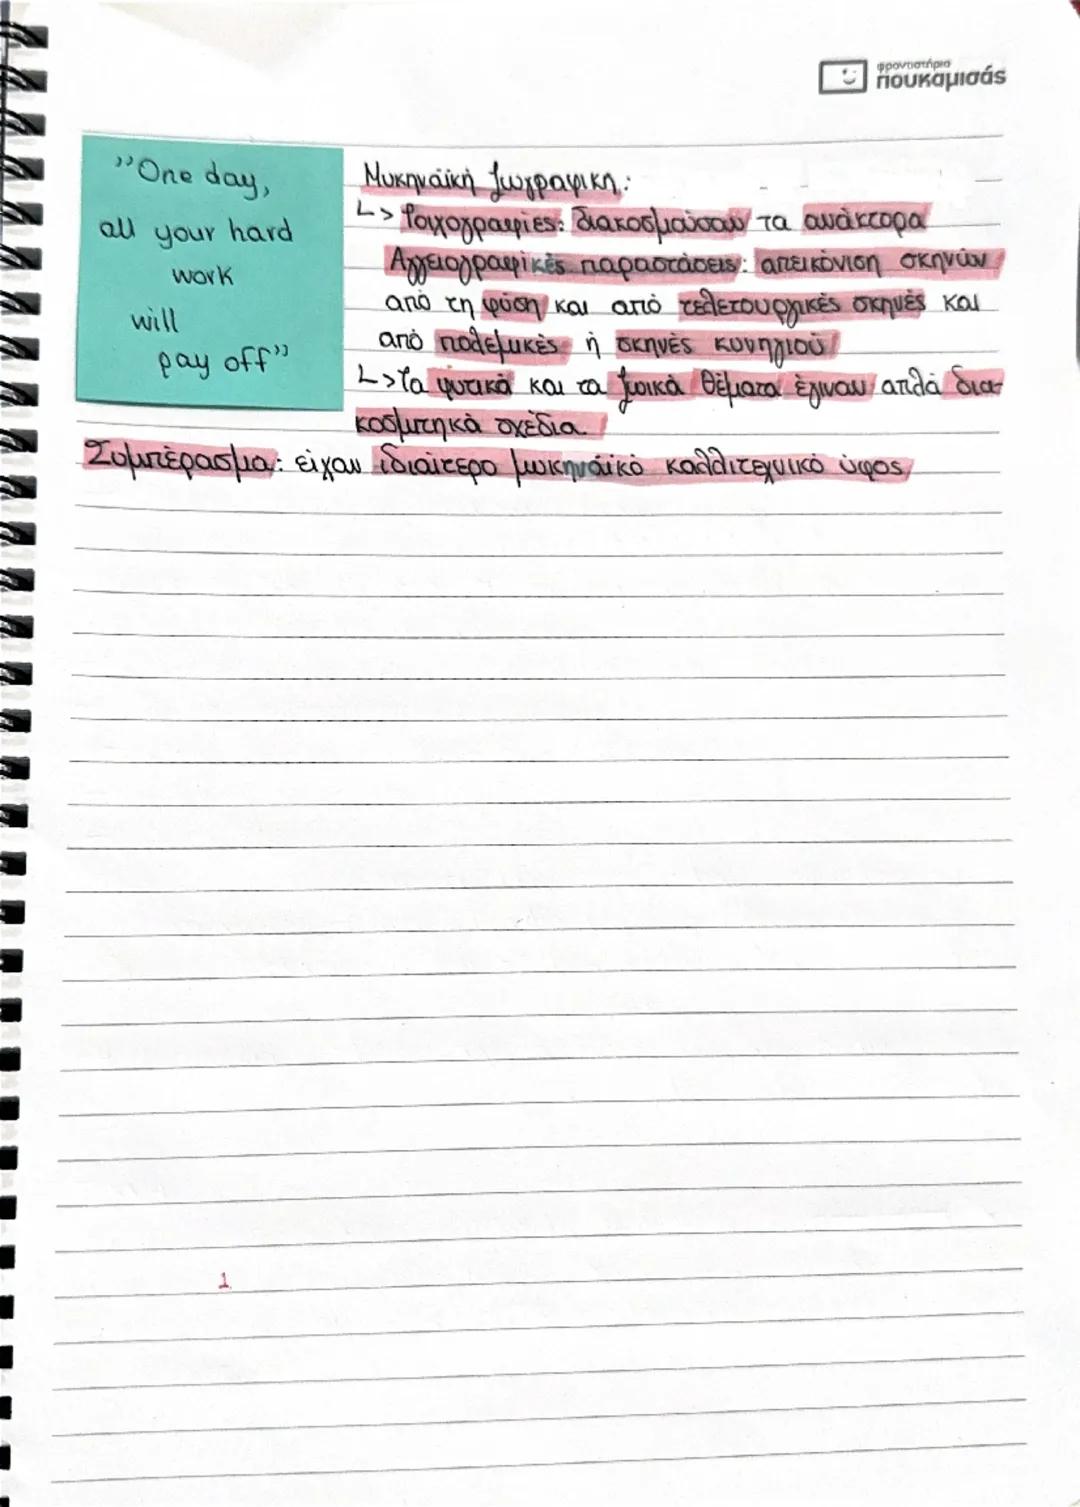 φροντιστήρια
πουκαμισάς
"One day,
all your hard
work
will
pay off"
Μυκηναϊκή ζωγραφική:
↳> Τοιχογραφίες: διακοσμούσαν τα ανάκτορα
Αγγειογραφικές παραστάσεις: απεικόνιση σκηνών
από τη φύση και από τελετουργικές σκηνές και
από πολεμικές ή σκηνές κυνηγιού
↳>Τα φυτικά και τα ζωικά θέματα έγιναν απλά δια-
κοσμητικά σχέδια.
Συμπέρασμα: είχαν ιδιαίτερο μυκηναϊκό καλλιτεχνικό ύφος
1